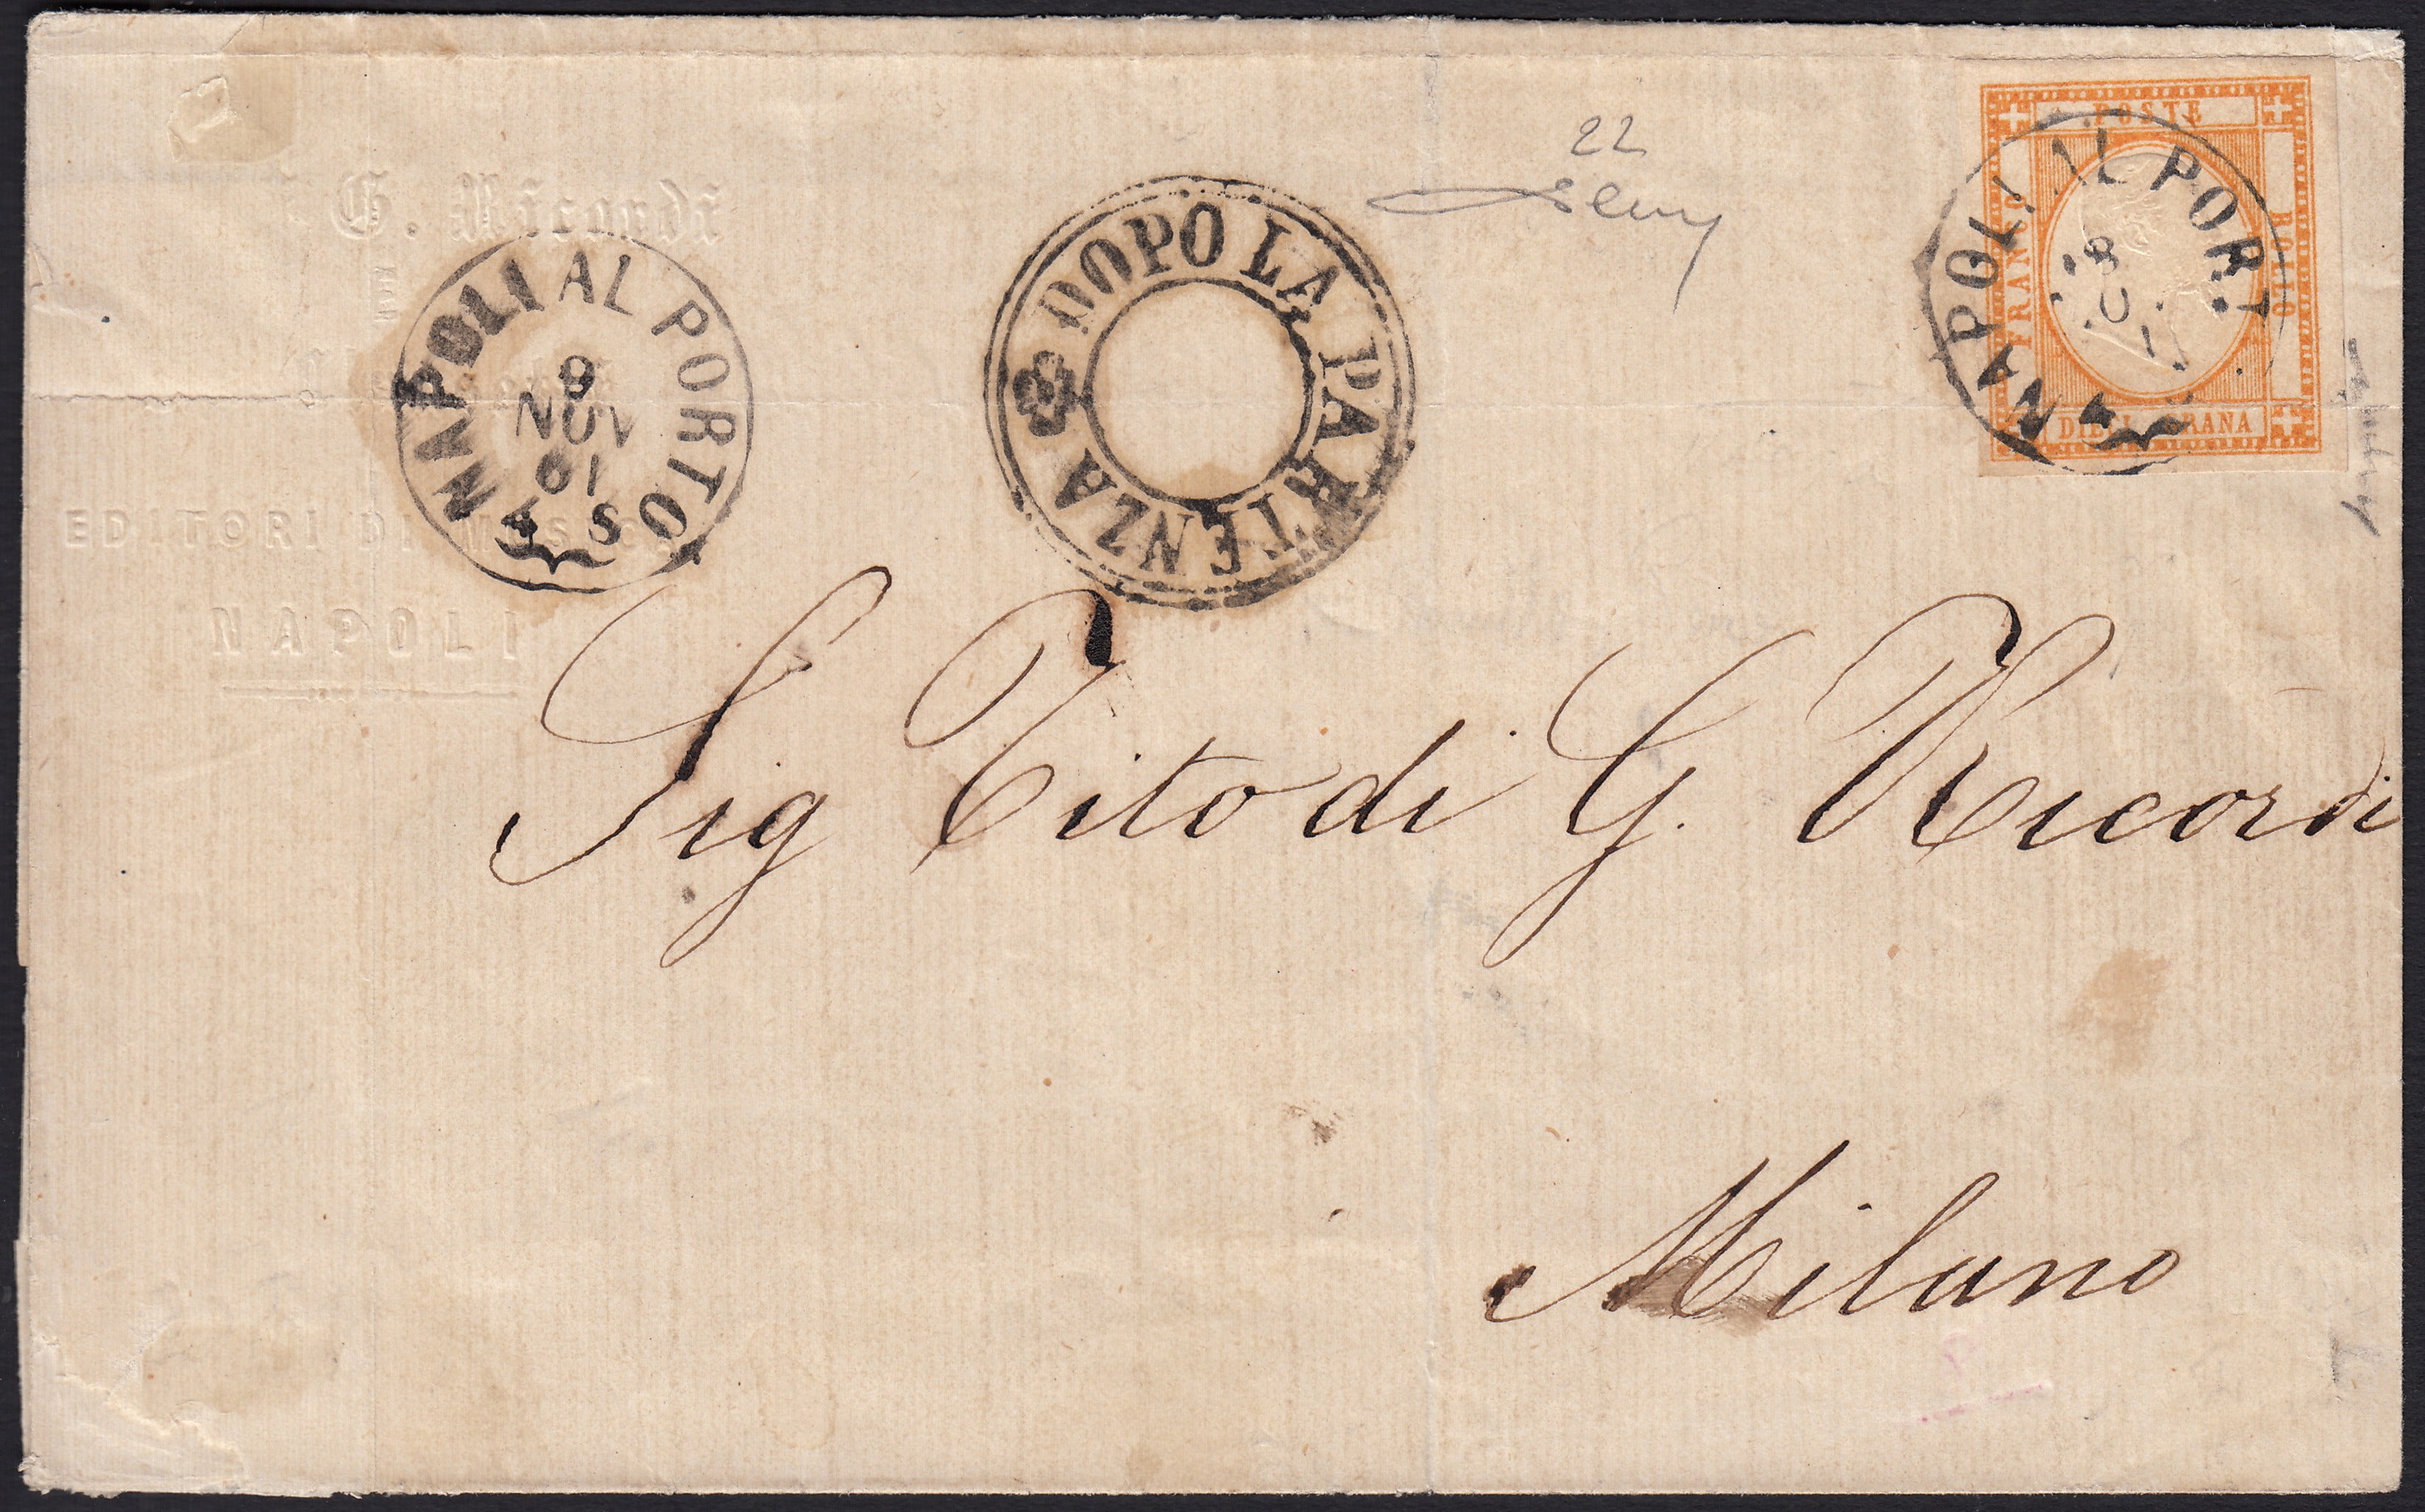 G. Ricordi
EDITORI DI MUSICA
NAPOLI
NAPOLI AL PORTO
9
NOV
61
4 S
DOPO LA PARTENZA
22
POSTE
FRANCO
BOLLO
DIECI GRANA
NAPOLI AL PORT
4
Sig Tito di G. Ricordi
Milano